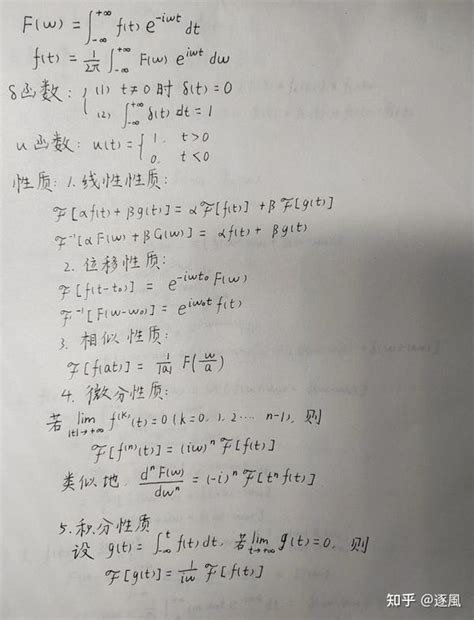 F(w) = ∫_{-∞}^{+∞} f(t) e^{-iwt} dt
f(t) = \frac{1}{2π} ∫_{-∞}^{+∞} F(w) e^{iwt} dw
δ函数: { (1) t≠0时 δ(t)=0
(2) ∫_{-∞}^{+∞} δ(t) dt = 1
u函数: u(t) = { 1. t>0
0. t<0
性质: 1. 线性性质:
ℱ[αf(t)+βg(t)] = αℱ[f(t)] + βℱ[g(t)]
ℱ^{-1}[αF(w)+βG(w)] = αf(t)+βg(t)
2. 位移性质:
ℱ[f(t-t₀)] = e^{-iwt₀} F(w)
ℱ^{-1}[F(w-w₀)] = e^{iw₀t} f(t)
3. 相似性质:
ℱ[f(at)] = \frac{1}{|a|} F(\frac{w}{a})
4. 微分性质:
若 \lim_{|t|→+∞} f^{(k)}(t)=0 (k=0,1,2…n-1), 则
ℱ[f^{(n)}(t)] = (iw)^n ℱ[f(t)]
类似地, \frac{d^n F(w)}{dw^n} = (-i)^n ℱ[t^n f(t)]
5. 积分性质
设 g(t) = ∫_{-∞}^{t} f(t) dt, 若 \lim_{t→+∞} g(t)=0, 则
ℱ[g(t)] = \frac{1}{iw} ℱ[f(t)]
知乎 @逐風